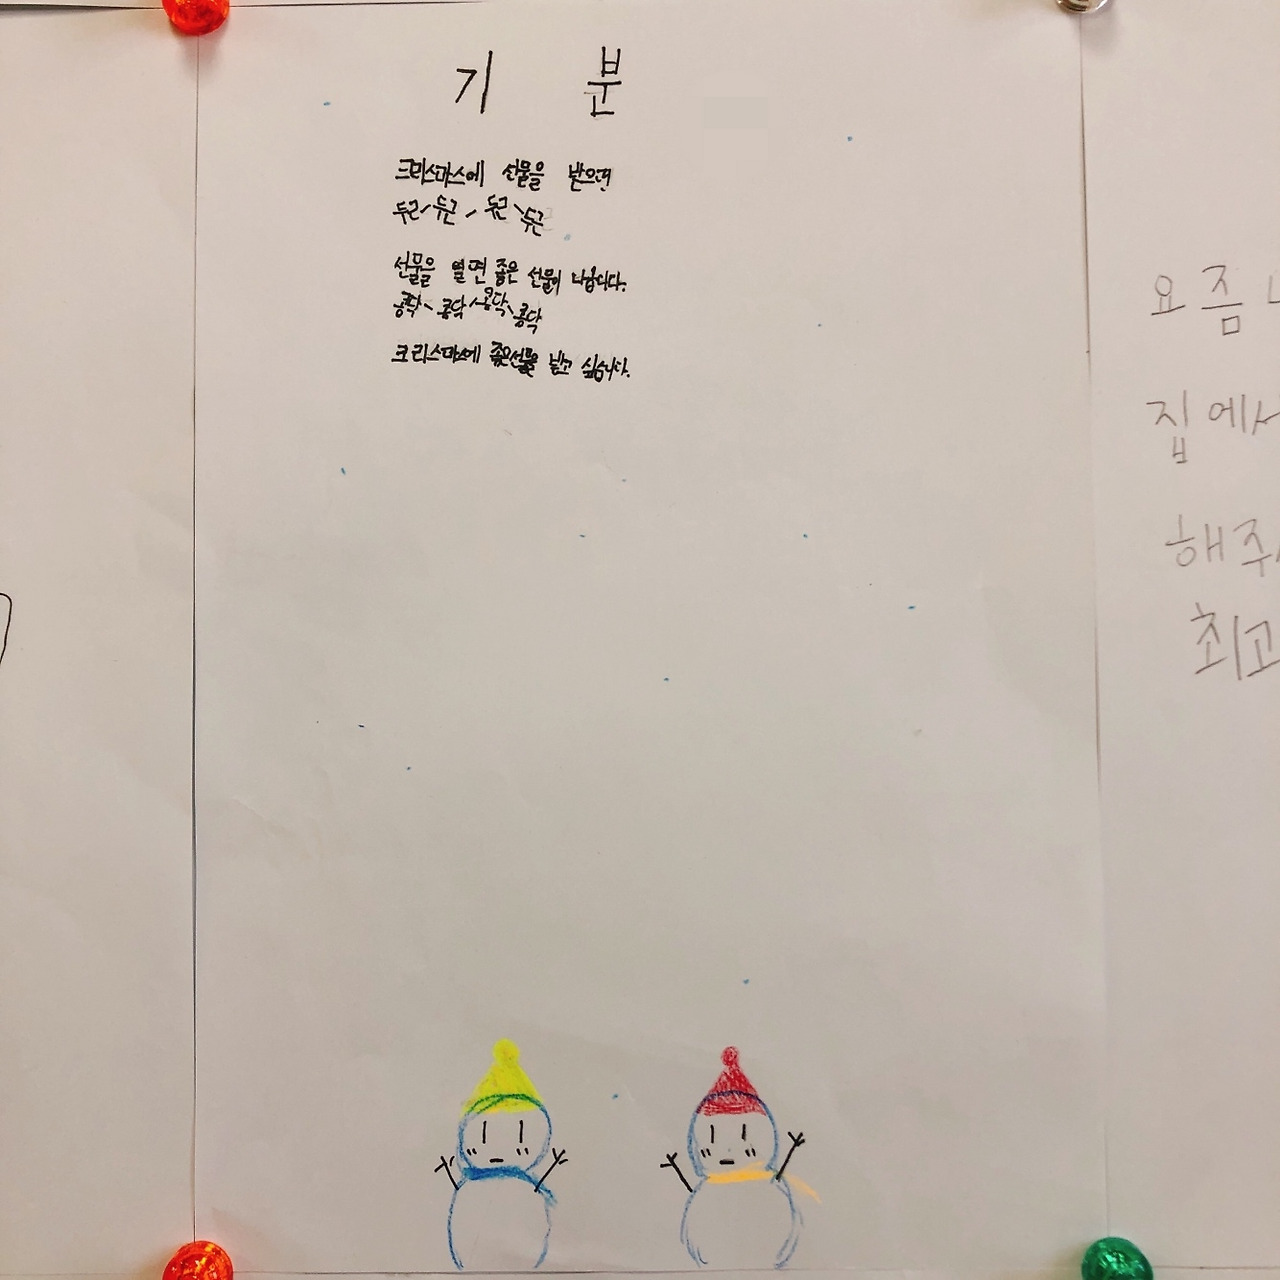 기 분
크리스마스에 선물을 받으면
두근~두근~두근~두근
선물을 열면 좋은 선물이 나옵니다.
콩닥~콩닥~콩닥~콩닥
크리스마스에 좋은선물을 받고 싶습니다.
요즘
집에서
해주
최고